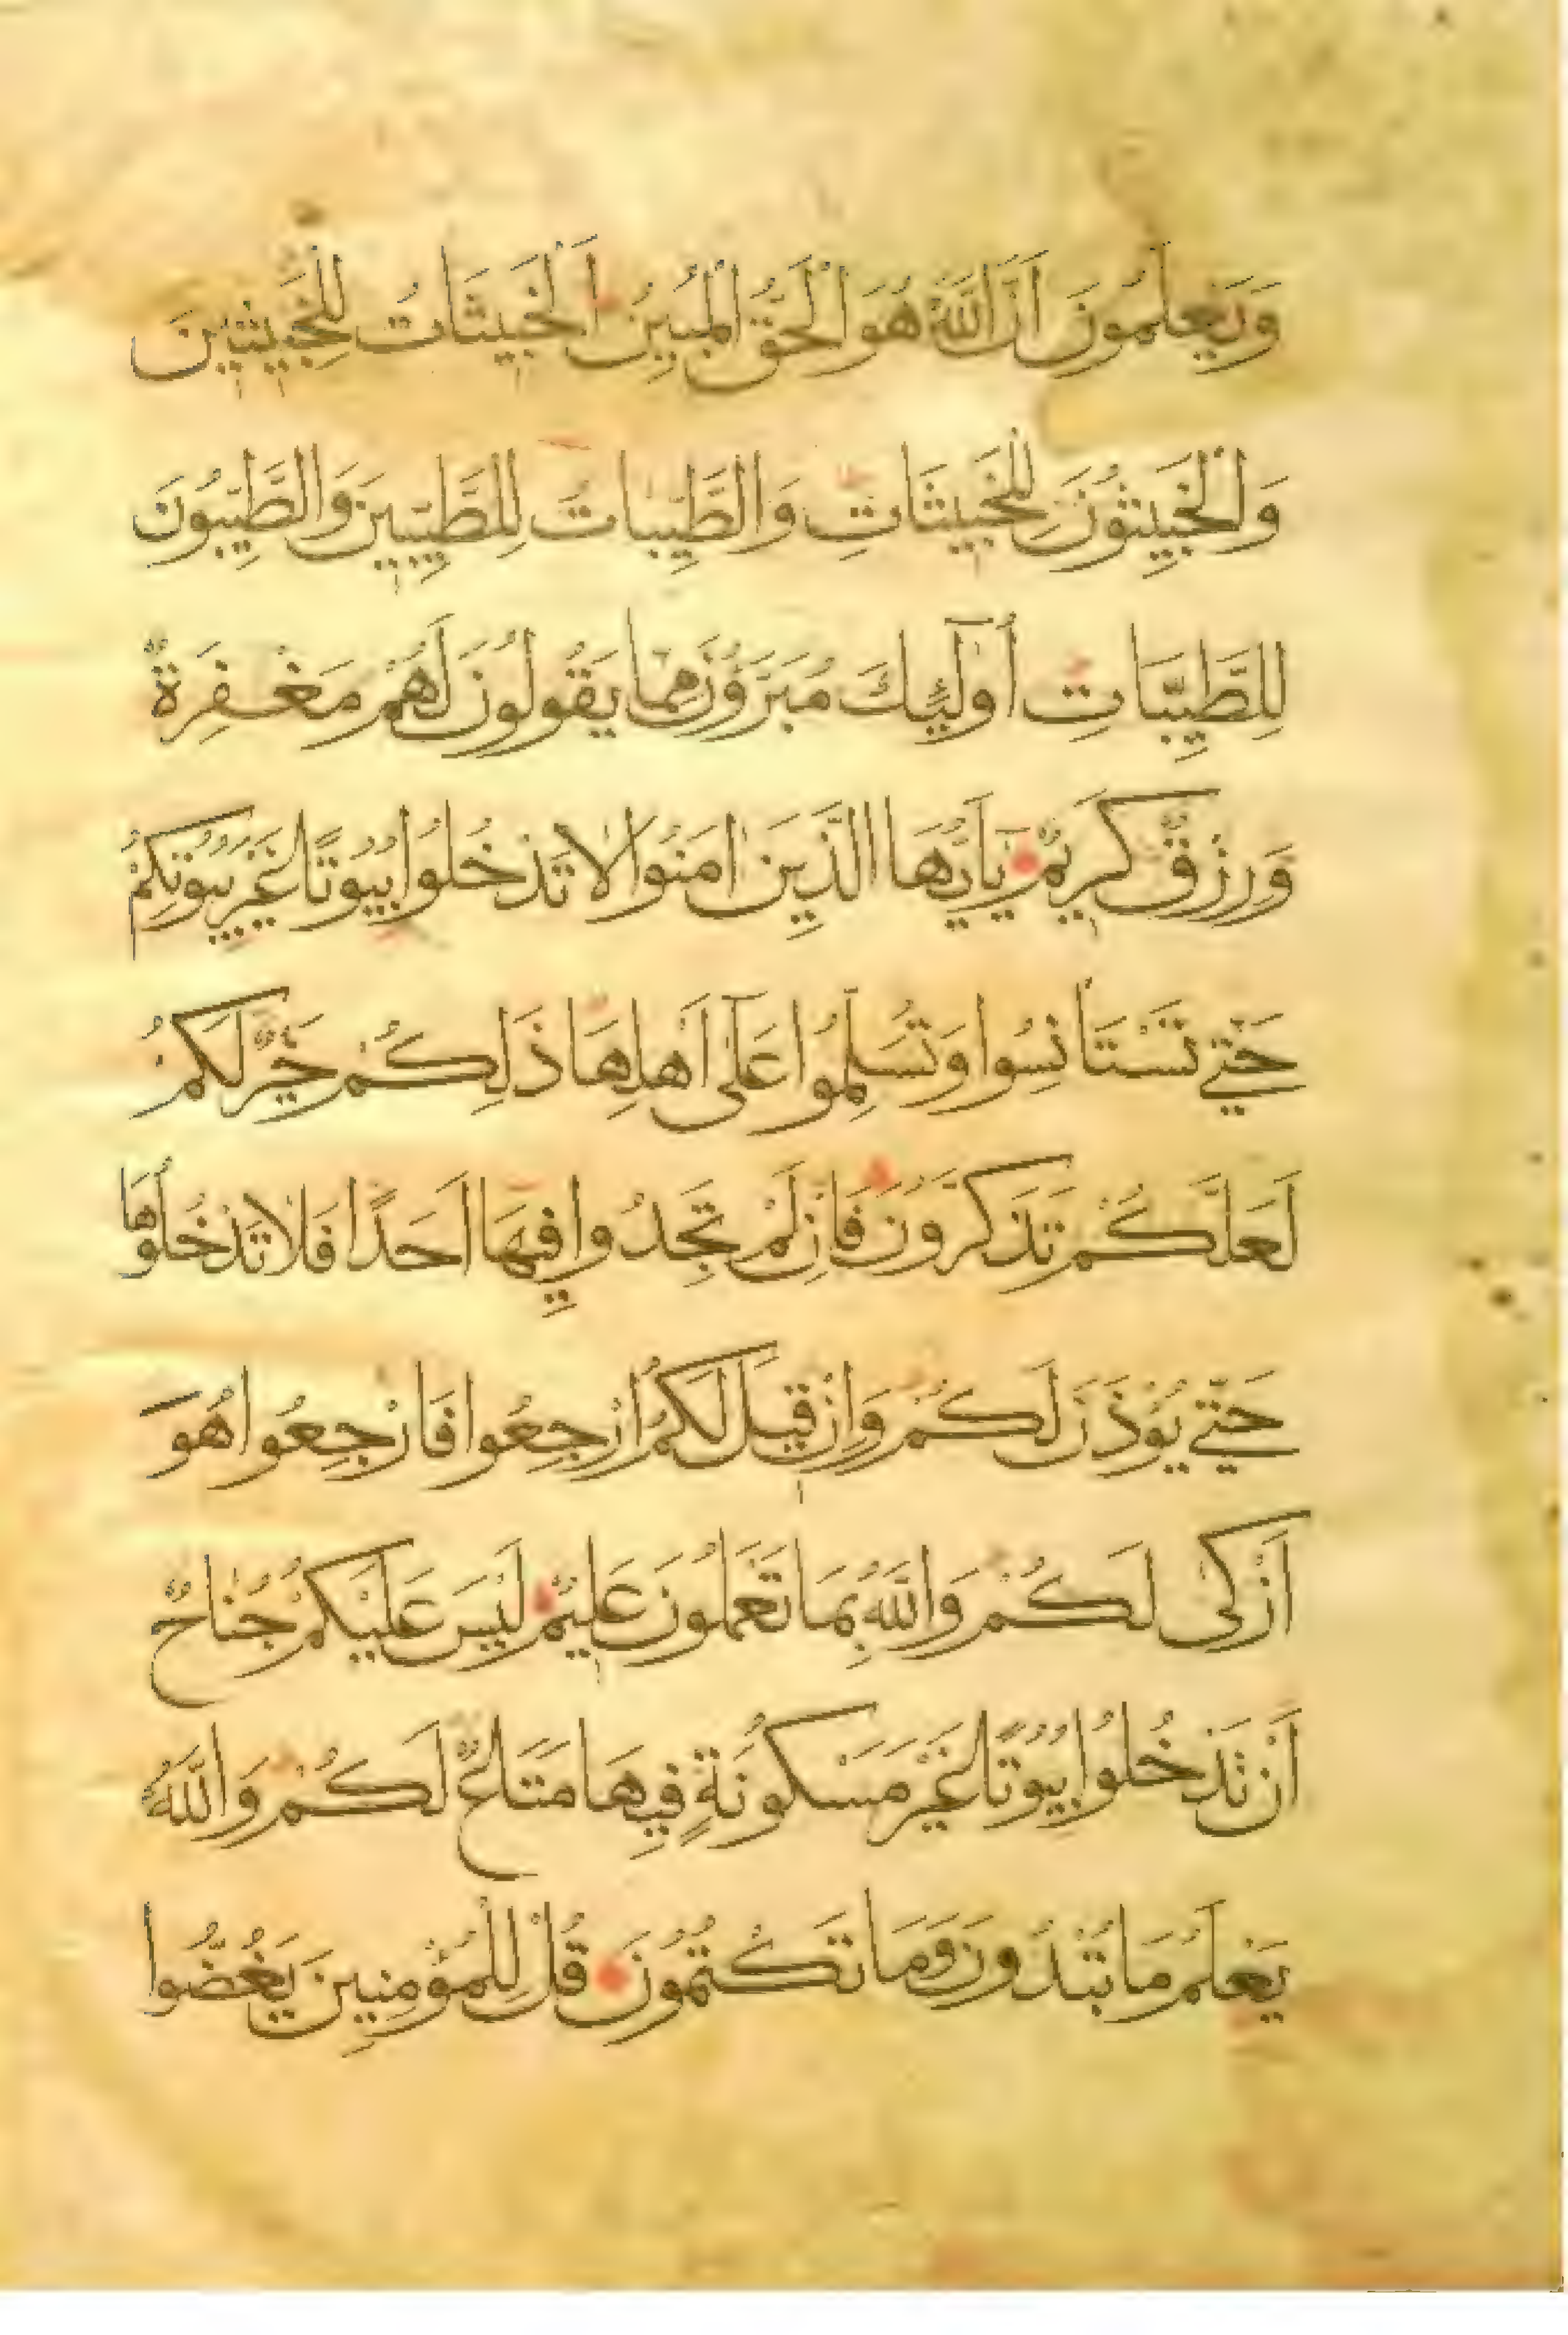 وَيَعْلَمُونَ اَنَّ اللَّهَ هُوَ الْحَقُّ الْمُبِينُ اَلْخَبِيثَاتُ لِلْخَبِيثِينَ
وَالْخَبِيثُونَ لِلْخَبِيثَاتِ وَالطَّيِّبَاتُ لِلطَّيِّبِينَ وَالطَّيِّبُونَ
لِلطَّيِّبَاتِ أُولَٰئِكَ مُبَرَّؤُنَ مِمَّا يَقُولُونَ لَهُمْ مَغْفِرَةٌ
وَرِزْقٌ كَرِيمٌ يَآ اَيُّهَا الَّذِينَ اٰمَنُوا لَا تَدْخُلُوا بُيُوتًا غَيْرَ بُيُوتِكُمْ
حَتّٰي تَسْتَأْنِسُوا وَتُسَلِّمُوا عَلٰٓى اَهْلِهَا ذَلِكُمْ خَيْرٌ لَكُمْ
لَعَلَّكُمْ تَذَكَّرُونَ فَاِنْ لَمْ تَجِدُوا فِيهَا اَحَدًا فَلَا تَدْخُلُوهَا
حَتّٰي يُؤْذَنَ لَكُمْ وَاِنْ قِيلَ لَكُمُ ارْجِعُوا فَارْجِعُوا هُوَ
اَزْكٰى لَكُمْ وَاللَّهُ بِمَا تَعْمَلُونَ عَلِيمٌ لَيْسَ عَلَيْكُمْ جُنَاحٌ
اَنْ تَدْخُلُوا بُيُوتًا غَيْرَ مَسْكُونَةٍ فِيهَا مَتَاعٌ لَكُمْ وَاللَّهُ
يَعْلَمُ مَا تُبْدُونَ وَمَا تَكْتُمُونَ قُلْ لِلْمُؤْمِنِينَ يَغُضُّوا